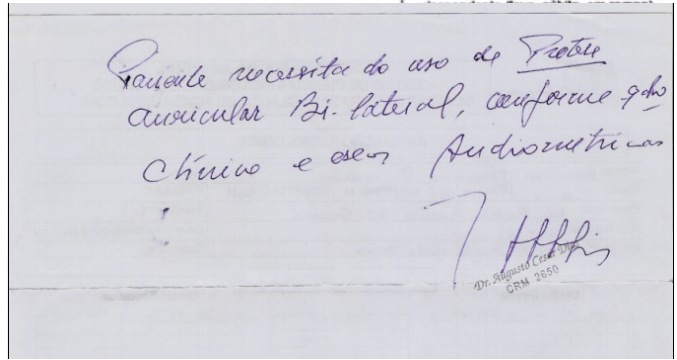 Paciente necessita do uso de Prótese
auricular Bi-lateral, conforme qdro
clínico e exes Audiométricos
Dr. Augusto Cesar
CRM 2650